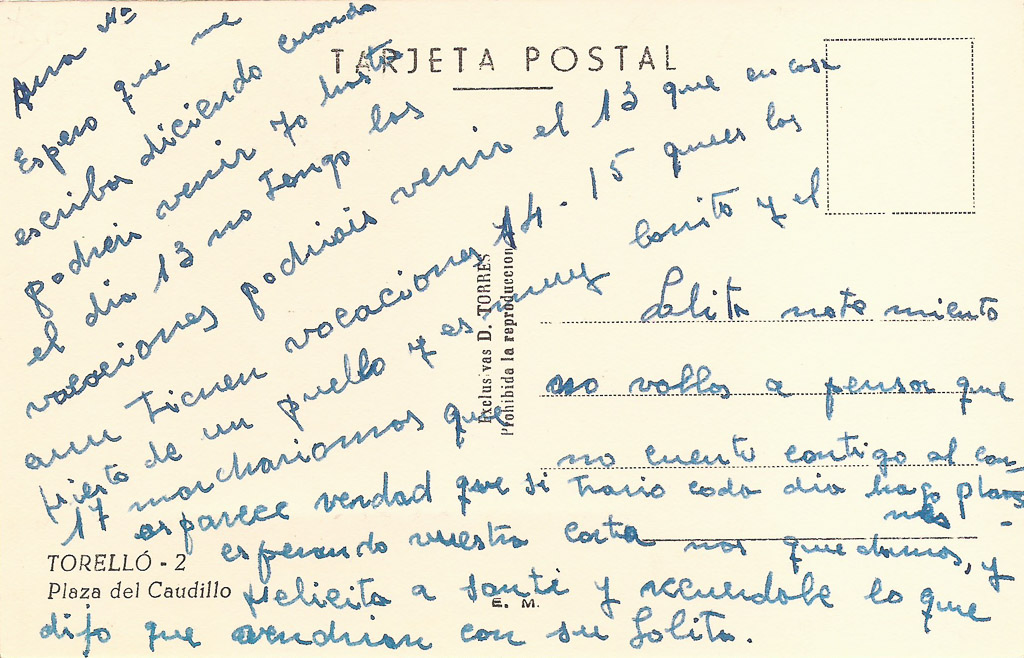 Ana Mª
TARJETA POSTAL
Espero que me
escribas diciendo cuando
podreis venir yo hasta
el dia 13 no tengo las
vacaciones podriais venir el 13 que en casa
aun tienen vacaciones 14 - 15 que es las
fiesta de un pueblo y es muy bonito y el
17 marchariamos que
os parece verdad que si
esperando vuestra carta
Exclusivas D. TORRES
Prohibida la reproduccion
Lolita note miento
no vallas a pensar que
no cuento contigo al con-
trario cada dia hago planes
nos quedamos, y
felicita a Santi y recuerdale lo que
dijo que vendrian con su Lolita.
TORELLÓ - 2
Plaza del Caudillo
E. M.